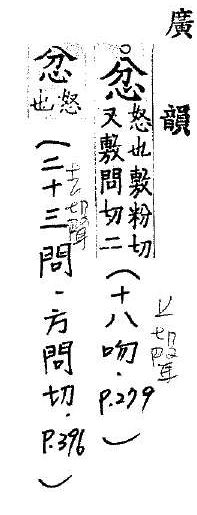 廣韻
忿怒也敷粉切
又敷問切二(十八吻.P.279)
上聲
忿怒也(二十三問.方問切.P.396)
去聲